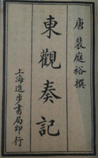 唐裴庭裕撰
東觀奏記
上海進步書局印行